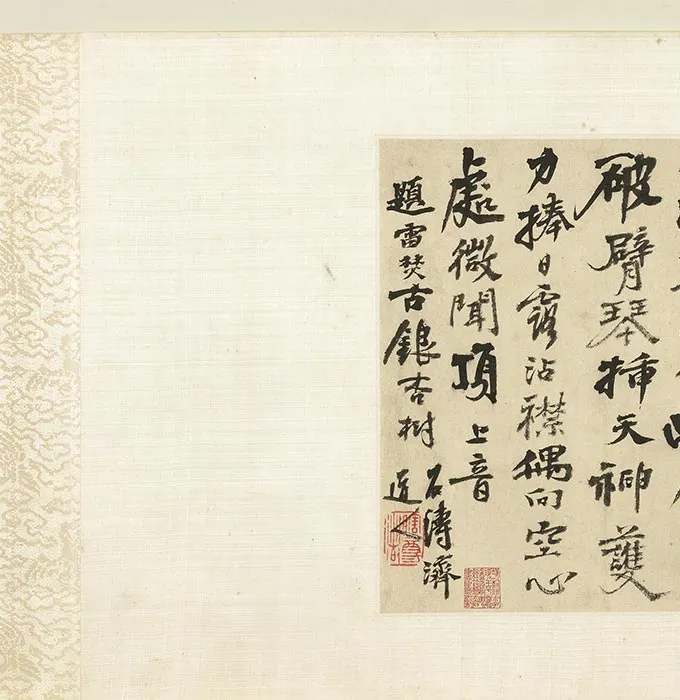 破臂琴挿天神護
力捧日露沾襟偶向空心
處微聞頂上音
題雷焚古銀杏樹
石濤濟
道人